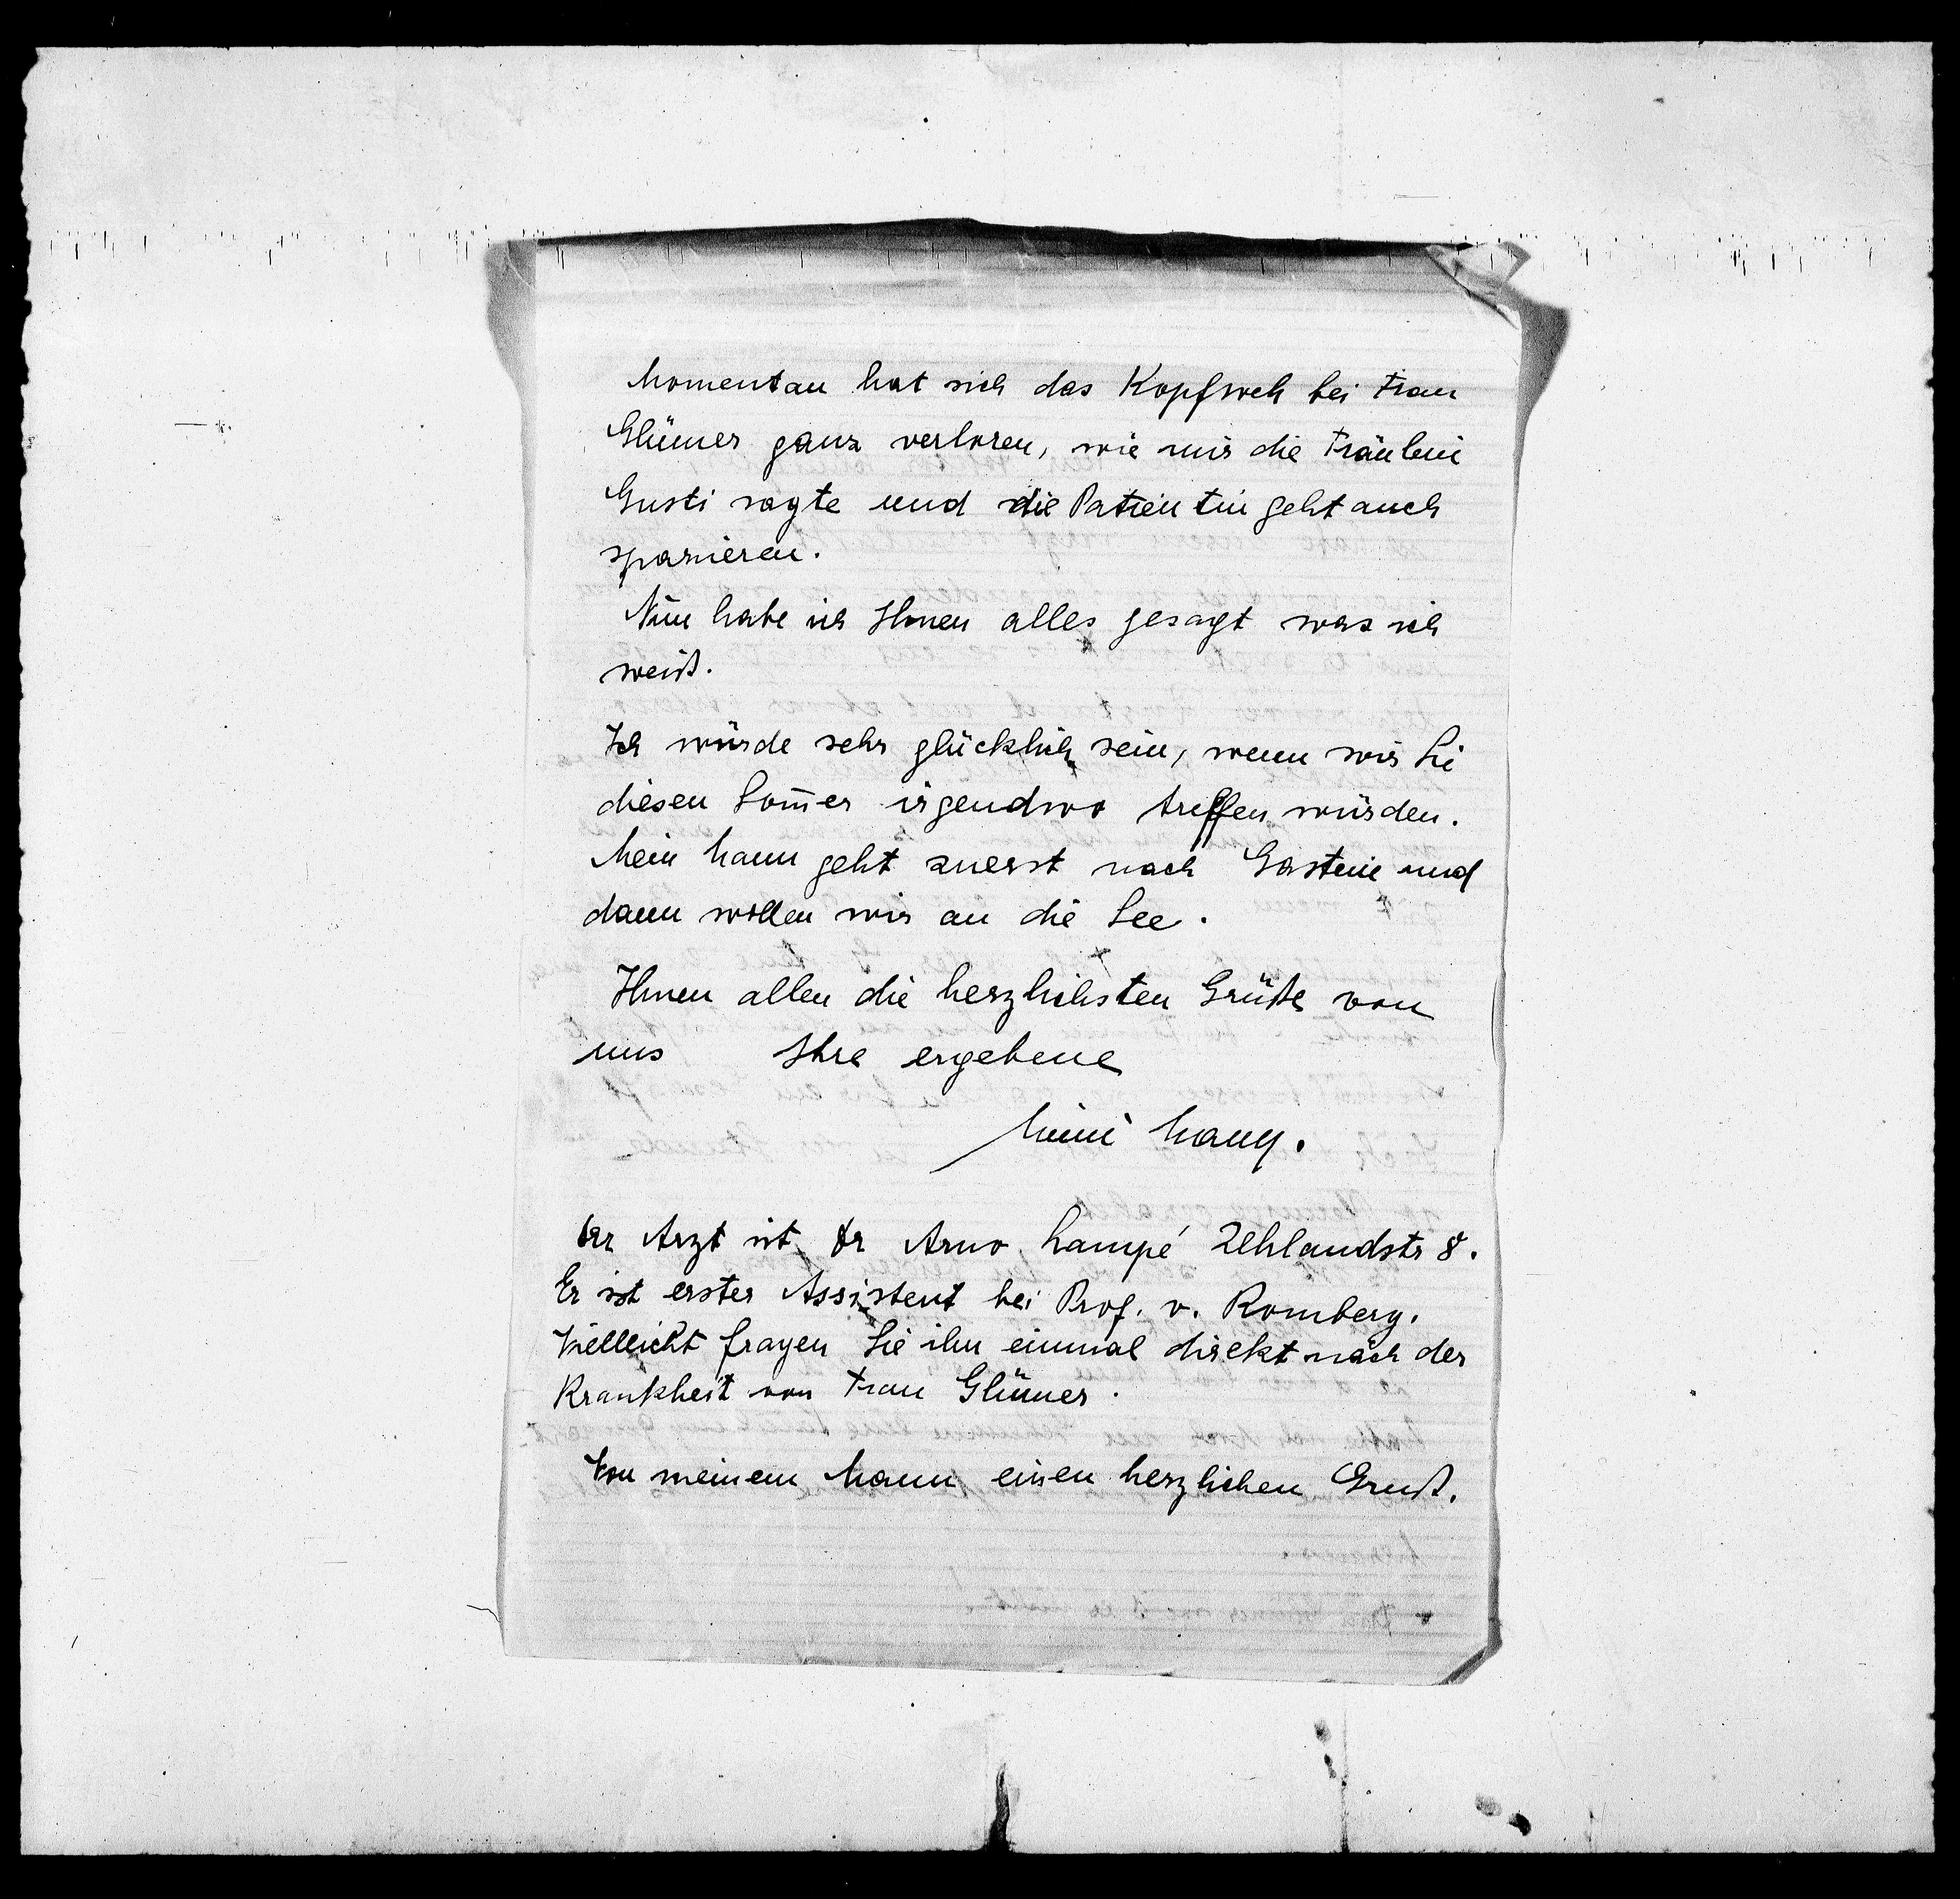 Momentan hat sich das Kopfweh bei Frau
Glümer ganz verloren, wie mir die Fräulein
Gusti sagte und die Patientin geht auch
spazieren.
Nun habe ich Ihnen alles gesagt was ich
weiß.
Ich würde sehr glücklich sein, wenn wir Sie
diesen Som̄er irgendwo treffen würden.
Mein Mann geht zuerst nach Gastein und
dann wollen wir an die See.
Ihnen allen die herzlichsten Grüße von
uns Ihre ergebene
Mimi
Der Arzt ist Dr Arno Lampé 8.
Er ist erster Assistent bei Prof. v. Romberg.
Vielleicht fragen Sie ihn einmal direkt nach der
Krankheit von Frau Glümer.
Von meinem Mann einen herzlichen Gruß.